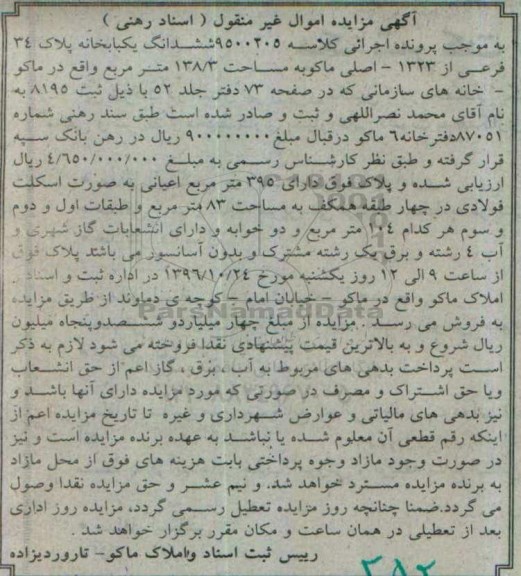 آگهی مزایده اموال غیر منقول ( اسناد رهنی )
به موجب پرونده اجرائی کلاسه ۹۵۰۰۲۰۵ششدانگ یکبابخانه پلاک ۳۴
فرعی از ۱۳۲۳ - اصلی ماکوبه مساحت ۱۳۸/۳ متر مربع واقع در ماکو
- خانه های سازمانی که در صفحه ۷۳ دفتر جلد ۵۲ با ذیل ثبت ۸۱۹۵ به
نام آقای محمد نصراللهی و ثبت و صادر شده است طبق سند رهنی شماره
۸۷۰۵۱دفترخانه۶ ماکو درقبال مبلغ ۹۰۰۰۰۰۰۰۰ ریال در رهن بانک سپه
قرار گرفته و طبق نظر کارشناس رسمی به مبلغ ۴/۶۵۰/۰۰۰/۰۰۰ ریال
ارزیابی شده و پلاک فوق دارای ۳۹۵ متر مربع اعیانی به صورت اسکلت
فولادی در چهار طبقه همکف به مساحت ۸۳ متر مربع و طبقات اول و دوم
و سوم هر کدام ۱۰۴ متر مربع و دو خوابه و دارای انشعابات گاز شهری و
آب ۴ رشته و برق یک رشته مشترک و بدون آسانسور می باشد پلاک فوق
از ساعت ۹ الی ۱۲ روز یکشنبه مورخ ۱۳۹۶/۱۰/۲۴ در اداره ثبت و اسناد
املاک ماکو واقع در ماکو - خیابان امام - کوچه ی دماوند از طریق مزایده
به فروش می رسد . مزایده از مبلغ چهار میلیاردو ششصدوپنجاه میلیون
ریال شروع و به بالاترین قیمت پیشنهادی نقدا فروخته می شود لازم به ذکر
است پرداخت بدهی های مربوط به آب ، برق ، گاز اعم از حق انشعاب
ویا حق اشتراک و مصرف در صورتی که مورد مزایده دارای آنها باشد و
نیز بدهی های مالیاتی و عوارض شهرداری و غیره تا تاریخ مزایده اعم از
اینکه رقم قطعی آن معلوم شده یا نباشد به عهده برنده مزایده است و نیز
در صورت وجود مازاد وجوه پرداختی بابت هزینه های فوق از محل مازاد
به برنده مزایده مسترد خواهد شد، و نیم عشر و حق مزایده نقدا وصول
می گردد.ضمنا چنانچه روز مزایده تعطیل رسمی گردد، مزایده روز اداری
بعد از تعطیلی در همان ساعت و مکان مقرر برگزار خواهد شد .
رییس ثبت اسناد واملاک ماکو- تاروردیزاده
۲۸۲
ParsNamadData